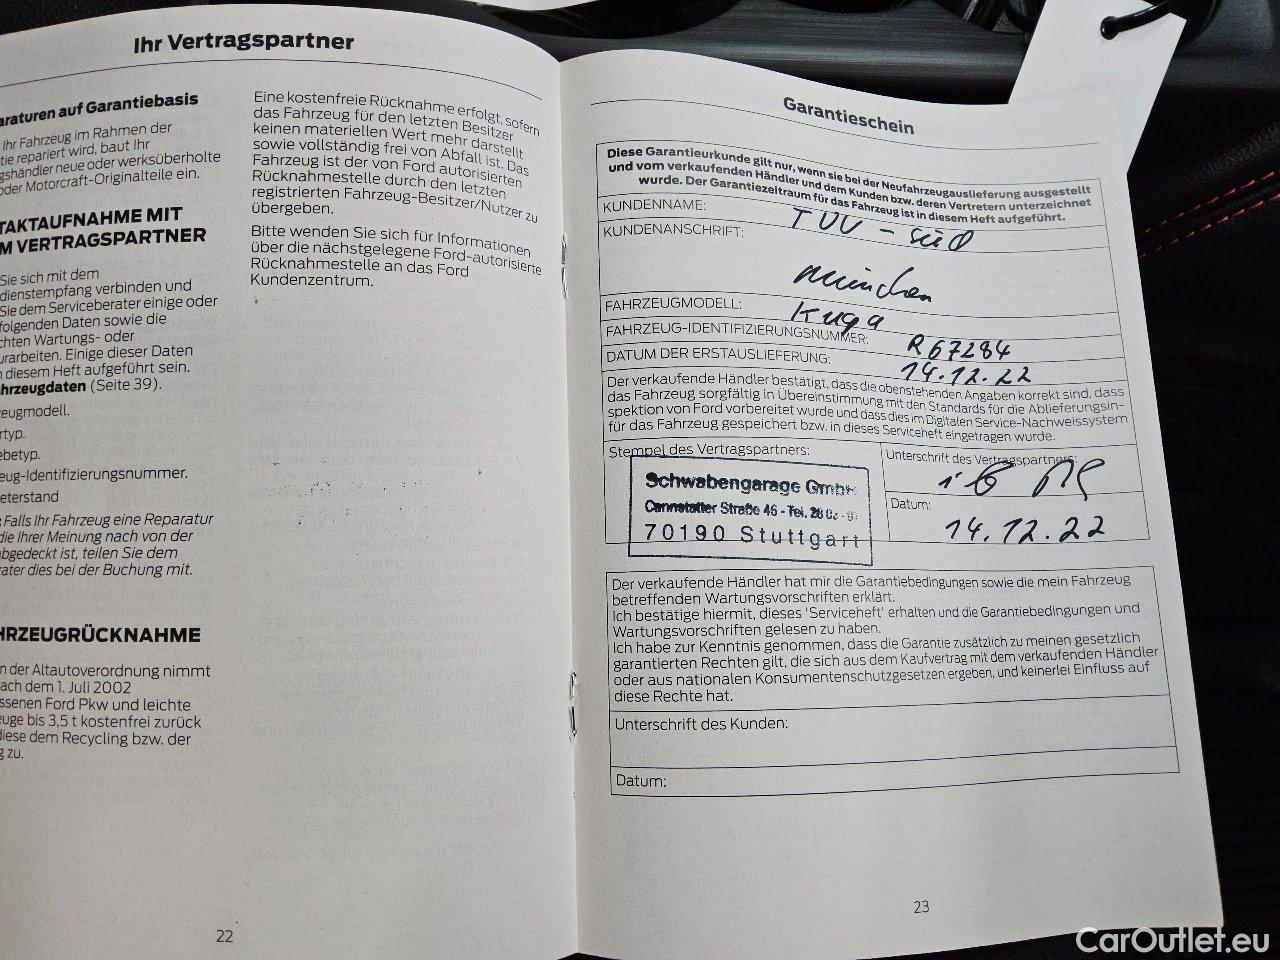 Ihr Vertragspartner
araturen auf Garantiebasis
Ihr Fahrzeug im Rahmen der
tie repariert wird, baut Ihr
gshändler neue oder werksüberholte
oder Motorcraft-Originalteile ein.
TAKTAUFNAHME MIT
M VERTRAGSPARTNER
Sie sich mit dem
dienstempfang verbinden und
Sie dem Serviceberater einige oder
folgenden Daten sowie die
chten Wartungs- oder
urarbeiten. Einige dieser Daten
n diesem Heft aufgeführt sein.
hrzeugdaten (Seite 39).
zeugmodell.
rtyp.
ebetyp.
eug-Identifizierungsnummer.
eterstand
: Falls Ihr Fahrzeug eine Reparatur
die Ihrer Meinung nach von der
abgedeckt ist, teilen Sie dem
rater dies bei der Buchung mit.
HRZEUGRÜCKNAHME
n der Altautoverordnung nimmt
ach dem 1. Juli 2002
ssenen Ford Pkw und leichte
euge bis 3,5 t kostenfrei zurück
diese dem Recycling bzw. der
g zu.
Eine kostenfreie Rücknahme erfolgt, sofern
das Fahrzeug für den letzten Besitzer
keinen materiellen Wert mehr darstellt
sowie vollständig frei von Abfall ist. Das
Fahrzeug ist der von Ford autorisierten
Rücknahmestelle durch den letzten
registrierten Fahrzeug-Besitzer/Nutzer zu
übergeben.
Bitte wenden Sie sich für Informationen
über die nächstgelegene Ford-autorisierte
Rücknahmestelle an das Ford
Kundenzentrum.
22
Garantieschein
Diese Garantieurkunde gilt nur, wenn sie bei der Neufahrzeugauslieferung ausgestellt
und vom verkaufenden Händler und dem Kunden bzw. deren Vertretern unterzeichnet
wurde. Der Garantiezeitraum für das Fahrzeug ist in diesem Heft aufgeführt.
KUNDENNAME: TÜV - süd
KUNDENANSCHRIFT:
München
FAHRZEUGMODELL: Kuga
FAHRZEUG-IDENTIFIZIERUNGSNUMMER: R67284
DATUM DER ERSTAUSLIEFERUNG: 14.12.22
Der verkaufende Händler bestätigt, dass die obenstehenden Angaben korrekt sind, dass
das Fahrzeug sorgfältig in Übereinstimmung mit den Standards für die Ablieferungsin-
spektion von Ford vorbereitet wurde und dass dies im Digitalen Service-Nachweissystem
für das Fahrzeug gespeichert bzw. in dieses Serviceheft eingetragen wurde.
Stempel des Vertragspartners:
Schwabengarage GmbH
Cannstatter Straße 46 - Tel. 28 02 -
70190 Stuttgart
Unterschrift des Vertragspartners:
Datum:
14.12.22
Der verkaufende Händler hat mir die Garantiebedingungen sowie die mein Fahrzeug
betreffenden Wartungsvorschriften erklärt.
Ich bestätige hiermit, dieses 'Serviceheft' erhalten und die Garantiebedingungen und
Wartungsvorschriften gelesen zu haben.
Ich habe zur Kenntnis genommen, dass die Garantie zusätzlich zu meinen gesetzlich
garantierten Rechten gilt, die sich aus dem Kaufvertrag mit dem verkaufenden Händler
oder aus nationalen Konsumentenschutzgesetzen ergeben, und keinerlei Einfluss auf
diese Rechte hat.
Unterschrift des Kunden:
Datum:
23
CarOutlet.eu